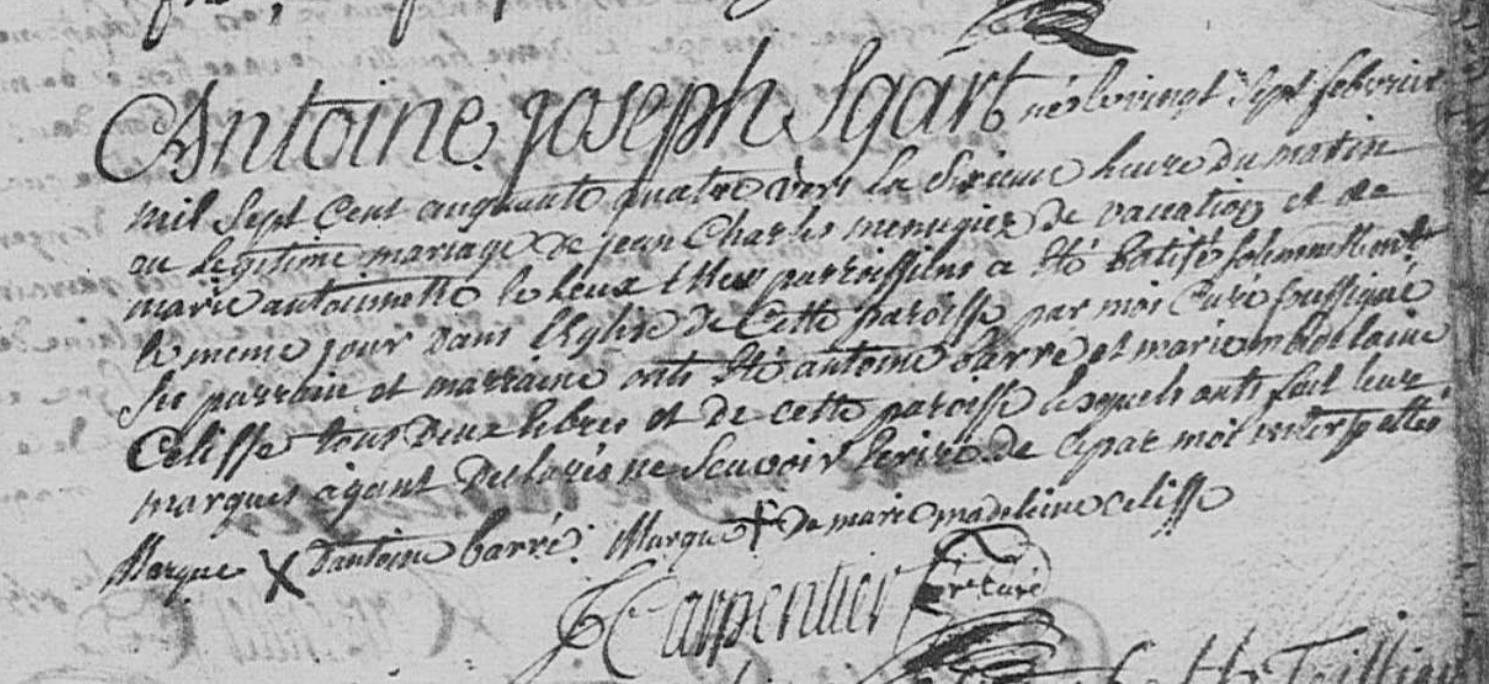 Antoine joseph Sgart né le vingt Sept febvrier
mil Sept Cent cinquante quatre vers la Sixieme heure du matin
au legitime mariage de jean Charles menugier de vaccation et de
marie antoinnette le heux tthex parroissiens a eté batisé solemnellement
le meme jour dans l'eglise de Cette paroisse par moi Curé soussigné
Ses parrain et marraine onts eté antoine barré et marie madelaine
Celisse tous deux libres et de cette paroisse lesquels onts fait leur
marques ayant declarés ne Scavoir ecrire de ce par moi interpellés
Marque X d'antoine barré. Marque + de marie madeleine celisse
J Carpentier ptre curé